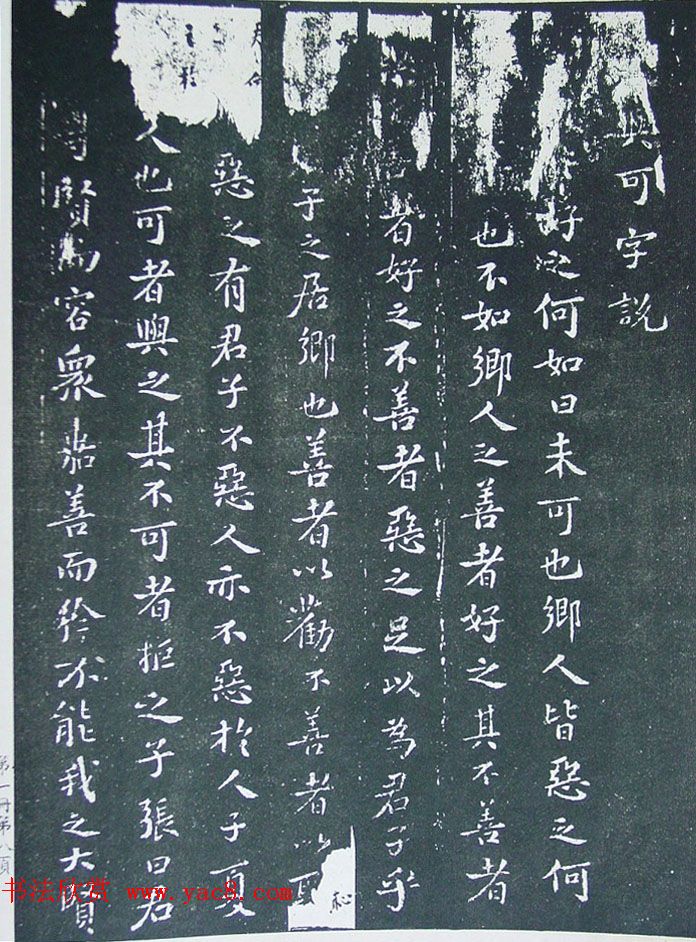 與可字說
好之何如曰未可也鄉人皆惡之何
也不如鄉人之善者好之其不善者
者好之不善者惡之足以為君子乎
子之居鄉也善者以勸不善者以
惡之有君子不惡人亦不惡於人子夏
人也可者與之其不可者拒之子張曰君
賢而容眾嘉善而矜不能我之大賢
第一冊第八頁
书法欣赏 www.yac8.com